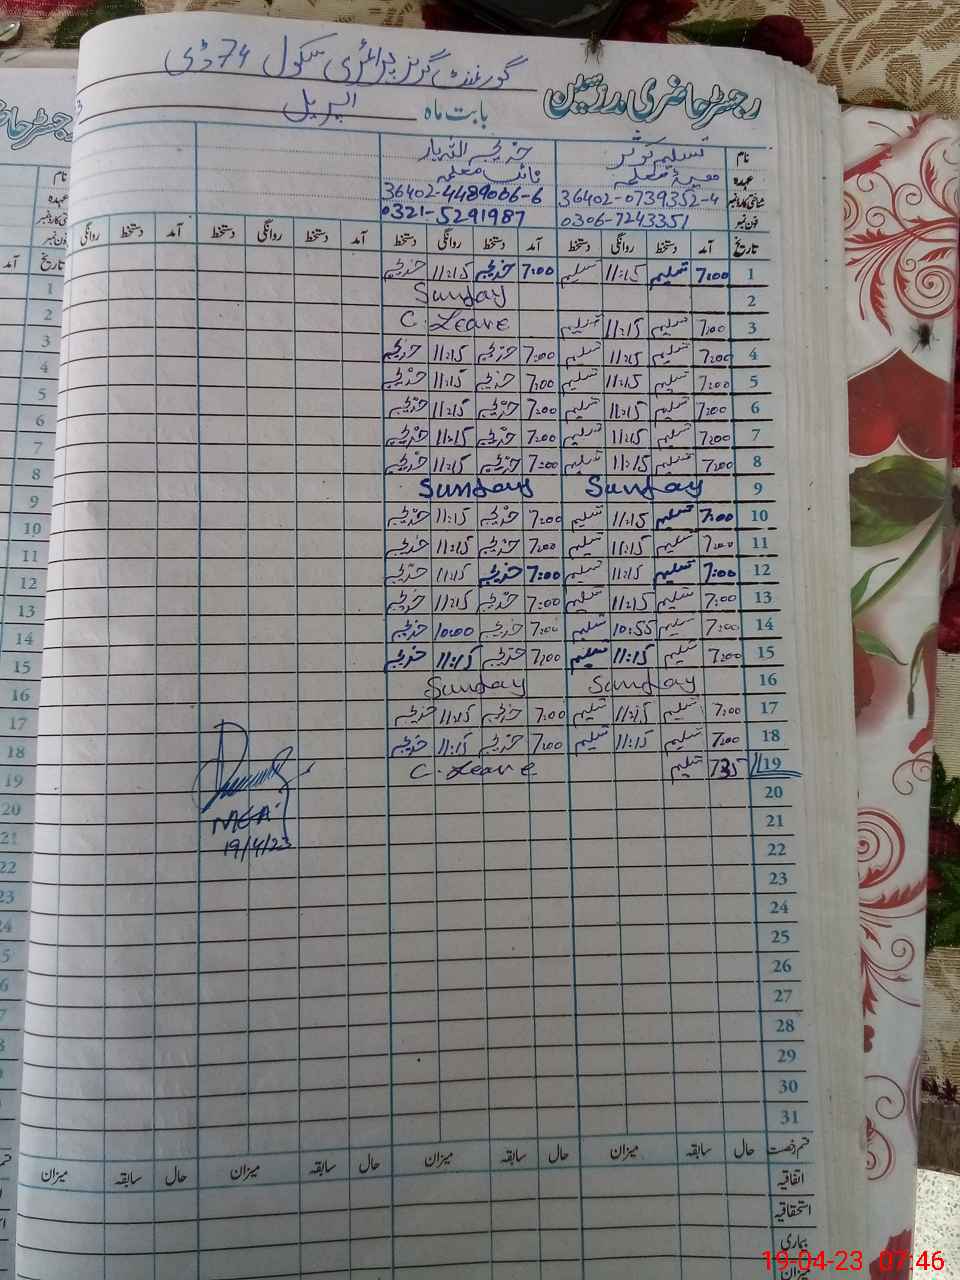 گورنمنٹ گرلز پرائمری سکول 74 ڈی
رجسٹر حاضری مدرسین
بابت ماہ اپریل
نام تسلیم کوثر خدیجہ اللہ یار
عہدہ ہیڈ معلمہ نائب معلمہ
شناختی کارڈ نمبر 36402-0739352-4 36402-4489006-6
فون نمبر 0306-7243351 0321-5291987
تاریخ آمد دستخط روانگی دستخط آمد دستخط روانگی دستخط آمد دستخط روانگی دستخط آمد دستخط روانگی
1 7:00 تسلیم 11:15 تسلیم 7:00 خدیجہ 11:15 خدیجہ
2 Sunday
3 7:00 تسلیم 11:15 تسلیم C. Leave
4 7:00 تسلیم 11:15 تسلیم 7:00 خدیجہ 11:15 خدیجہ
5 7:00 تسلیم 11:15 تسلیم 7:00 خدیجہ 11:15 خدیجہ
6 7:00 تسلیم 11:15 تسلیم 7:00 خدیجہ 11:15 خدیجہ
7 7:00 تسلیم 11:15 تسلیم 7:00 خدیجہ 11:15 خدیجہ
8 7:00 تسلیم 11:15 تسلیم 7:00 خدیجہ 11:15 خدیجہ
9 Sunday Sunday
10 7:00 تسلیم 11:15 تسلیم 7:00 خدیجہ 11:15 خدیجہ
11 7:00 تسلیم 11:15 تسلیم 7:00 خدیجہ 11:15 خدیجہ
12 7:00 تسلیم 11:15 تسلیم 7:00 خدیجہ 11:15 خدیجہ
13 7:00 تسلیم 11:15 تسلیم 7:00 خدیجہ 11:15 خدیجہ
14 7:00 تسلیم 10:55 تسلیم 7:00 خدیجہ 10:00 خدیجہ
15 7:00 تسلیم 11:15 تسلیم 7:00 خدیجہ 11:15 خدیجہ
16 Sunday Sunday
17 7:00 تسلیم 11:15 تسلیم 7:00 خدیجہ 11:15 خدیجہ
18 7:00 تسلیم 11:15 تسلیم 7:00 خدیجہ 11:15 خدیجہ
19 تسلیم C. Leave
MEA
19/4/23
20
21
22
23
24
25
26
27
28
29
30
31
قسم رخصت حال سابقہ میزان حال سابقہ میزان حال سابقہ میزان حال سابقہ میزان
اتفاقیہ
استحقاقیہ
بیماری
میزان
19-04-23 07:46